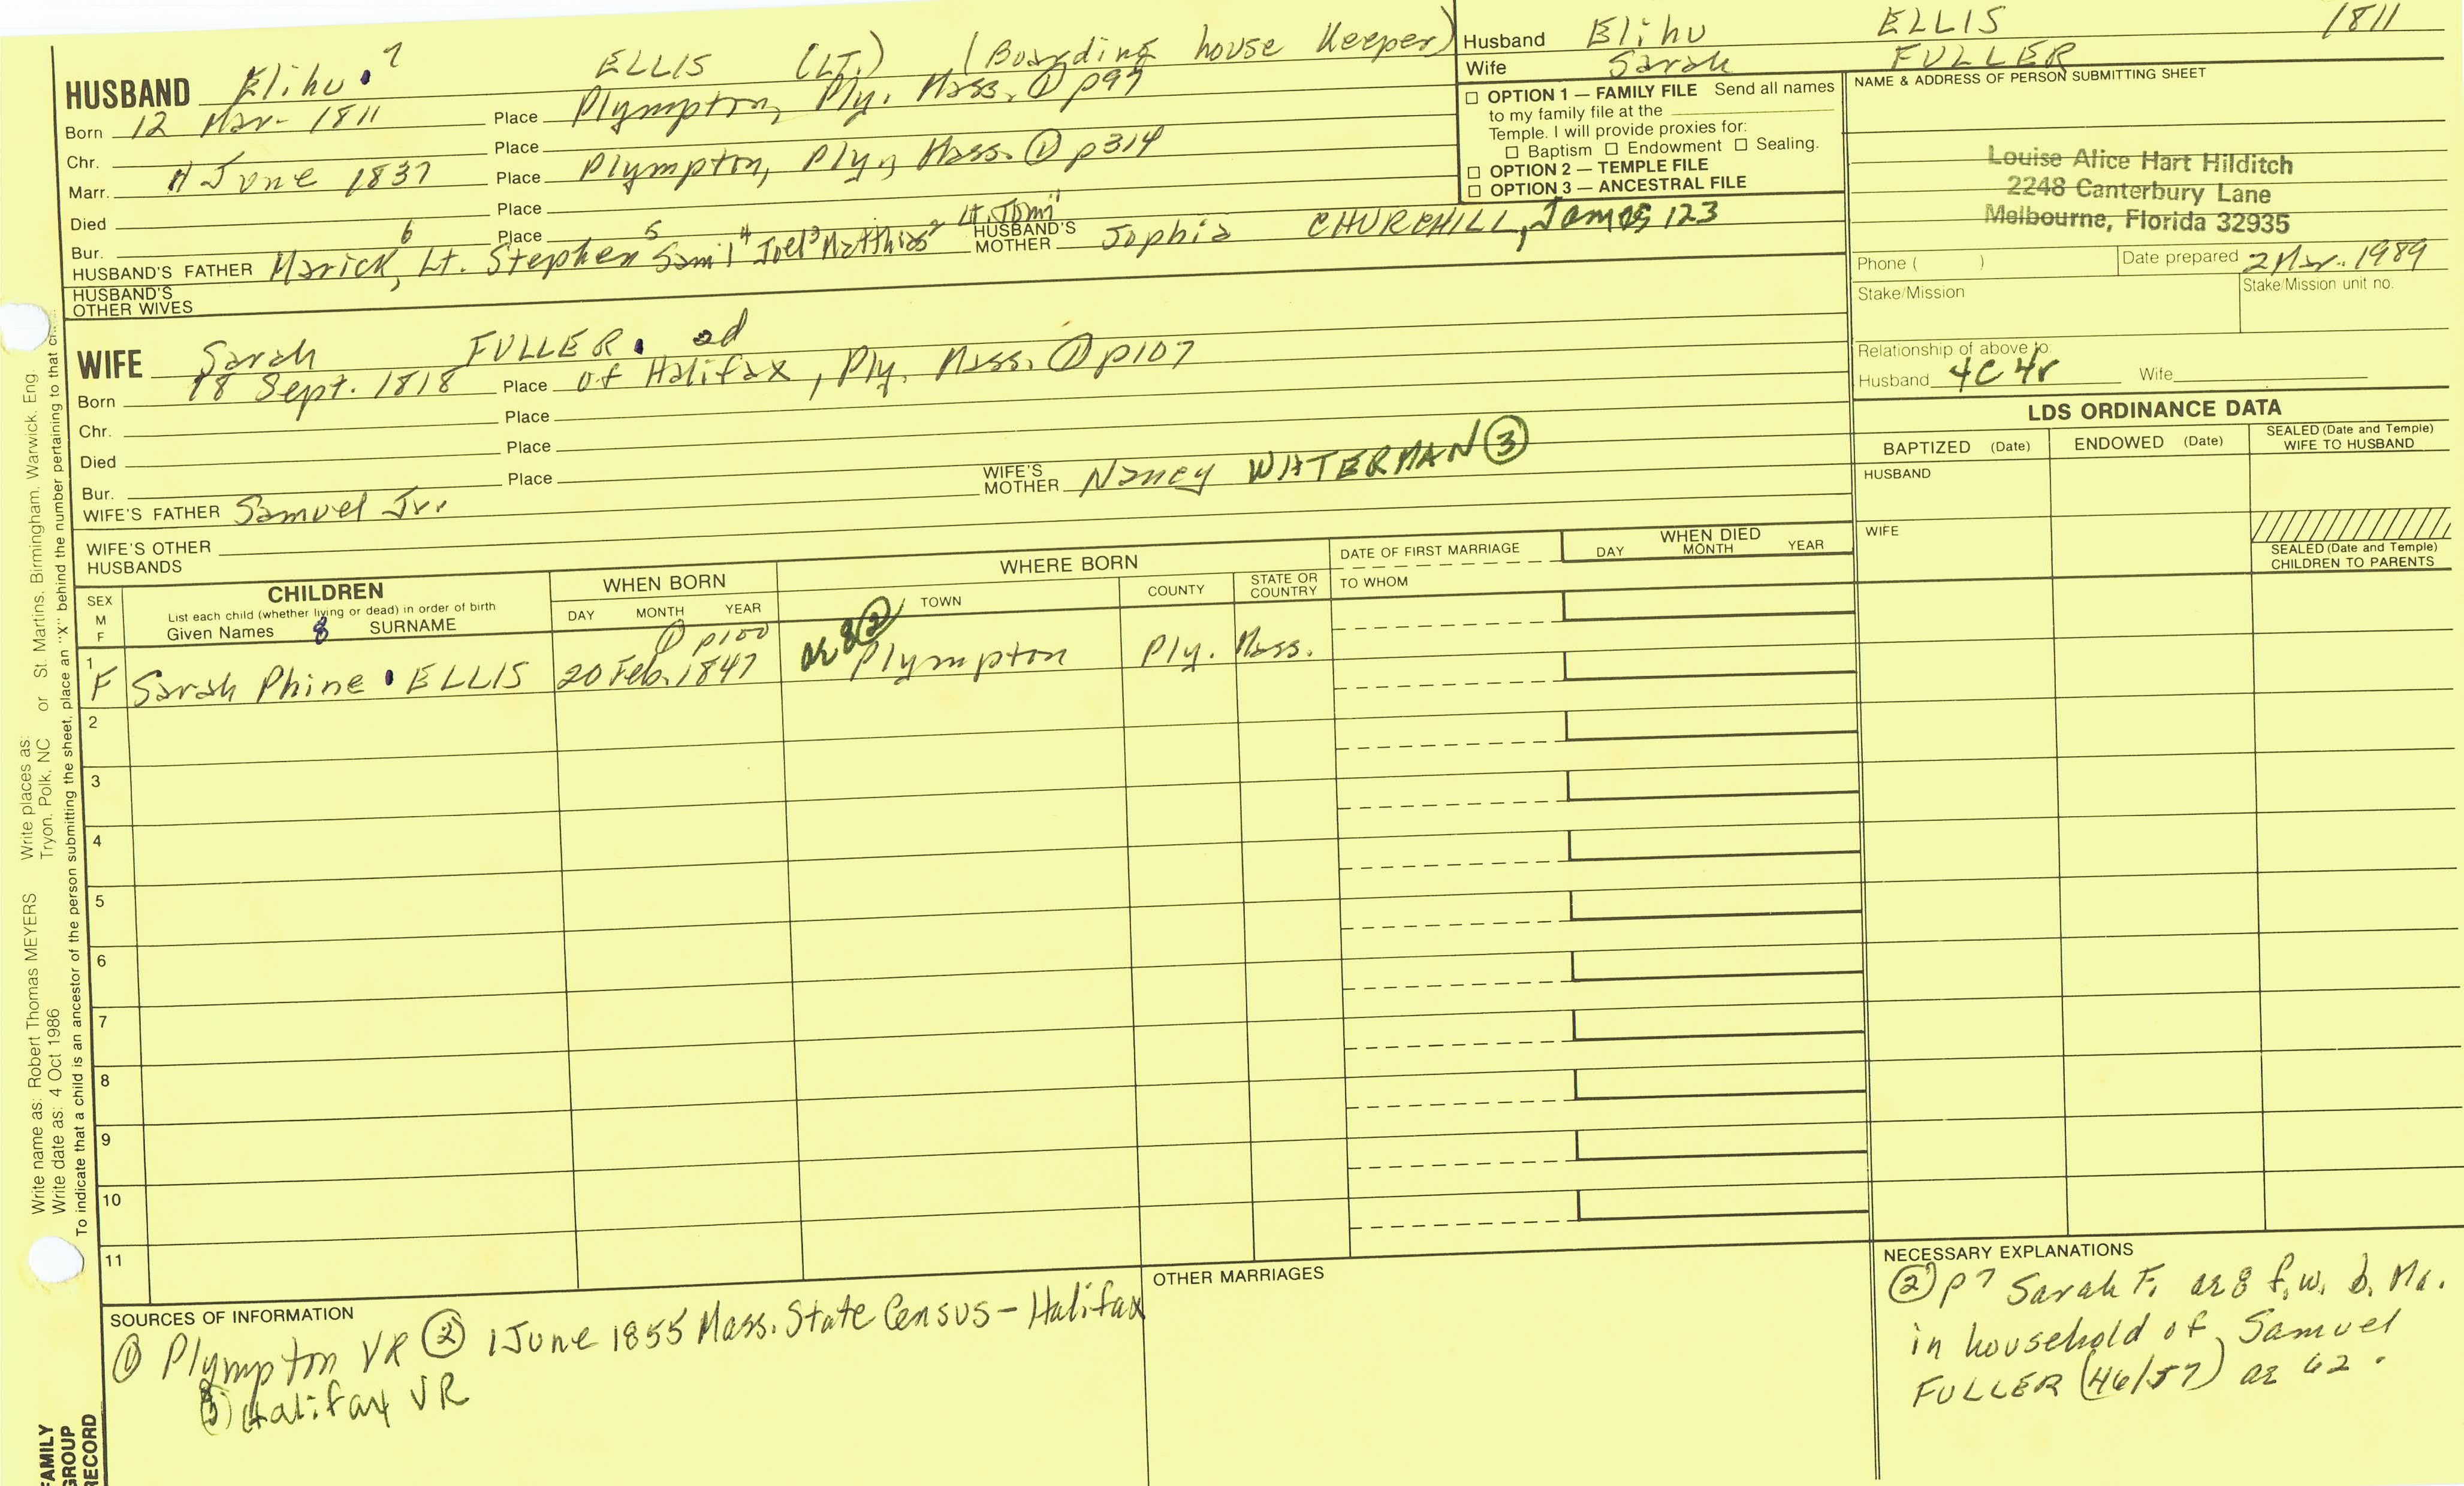 HUSBAND Elihu 7 ELLIS (LT.) (Boarding house Keeper)
Born 12 Mar. 1811 Place Plympton, Ply. Mass. ① p97
Chr. Place
Marr. June 1837 Place Plympton, Ply, Mass. ① p314
Died Place
Bur. Place
HUSBAND'S FATHER Marick, 6 Lt. Stephen 5 Sam'l 4 Joel 3 Matthias 2 Lt. John 1 HUSBAND'S MOTHER Sophia CHURCHILL, James 123
HUSBAND'S OTHER WIVES
WIFE Sarah FULLER. 2d
Born 18 Sept. 1818 Place of Halifax, Ply. Mass. ① p107
Chr. Place
Died Place
Bur. Place
WIFE'S FATHER Samuel Jr. WIFE'S MOTHER Nancy WATERMAN ③
WIFE'S OTHER HUSBANDS
Husband Elihu ELLIS 1811
Wife Sarah FULLER
☐ OPTION 1 — FAMILY FILE Send all names
to my family file at the
Temple. I will provide proxies for:
☐ Baptism ☐ Endowment ☐ Sealing.
☐ OPTION 2 — TEMPLE FILE
☐ OPTION 3 — ANCESTRAL FILE
NAME & ADDRESS OF PERSON SUBMITTING SHEET
Louise Alice Hart Hilditch
2248 Canterbury Lane
Melbourne, Florida 32935
Phone ( ) Date prepared 2 Mar. 1989
Stake/Mission Stake/Mission unit no.
Relationship of above to:
Husband 4C4r Wife
LDS ORDINANCE DATA
BAPTIZED (Date) ENDOWED (Date) SEALED (Date and Temple) WIFE TO HUSBAND
HUSBAND
WIFE
SEALED (Date and Temple) CHILDREN TO PARENTS
SEX M F
CHILDREN
List each child (whether living or dead) in order of birth
Given Names 8 SURNAME
WHEN BORN
DAY MONTH YEAR
WHERE BORN
TOWN COUNTY STATE OR COUNTRY
DATE OF FIRST MARRIAGE
TO WHOM
WHEN DIED
DAY MONTH YEAR
① p100 ae 8 ②
1 F Sarah Phine ELLIS 20 Feb. 1847 Plympton Ply. Mass.
2
3
4
5
6
7
8
9
10
11
SOURCES OF INFORMATION
① Plympton VR ② 1 June 1855 Mass. State Census - Halifax
③ Halifax VR
OTHER MARRIAGES
NECESSARY EXPLANATIONS
② p7 Sarah F. ae 8 f. w. b. Ma.
in household of Samuel
FULLER (46/57) ae 62.
Write name as: Robert Thomas MEYERS Write places as: Tryon, Polk, NC or St. Martins, Birmingham, Warwick, Eng.
Write date as: 4 Oct 1986
To indicate that a child is an ancestor of the person submitting the sheet, place an "X" behind the number pertaining to that
FAMILY
GROUP
RECORD